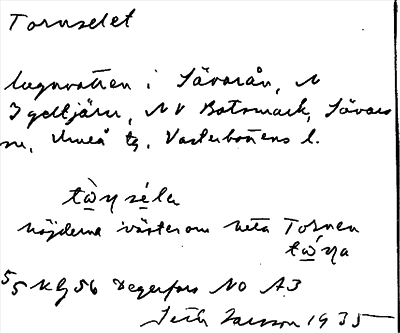 Tornselet
lugnvatten i Sävarån, N
Igeltjärn, NV Botsmark, Sävars
sn, Umeå tg, Västerbottens l.
tὼ̲ṇsé̲la
höjderna västerom heta Tornen
tώ̲ṇa
55 Kbg 56 Degerfors NO A3
Seth Larsson 1935